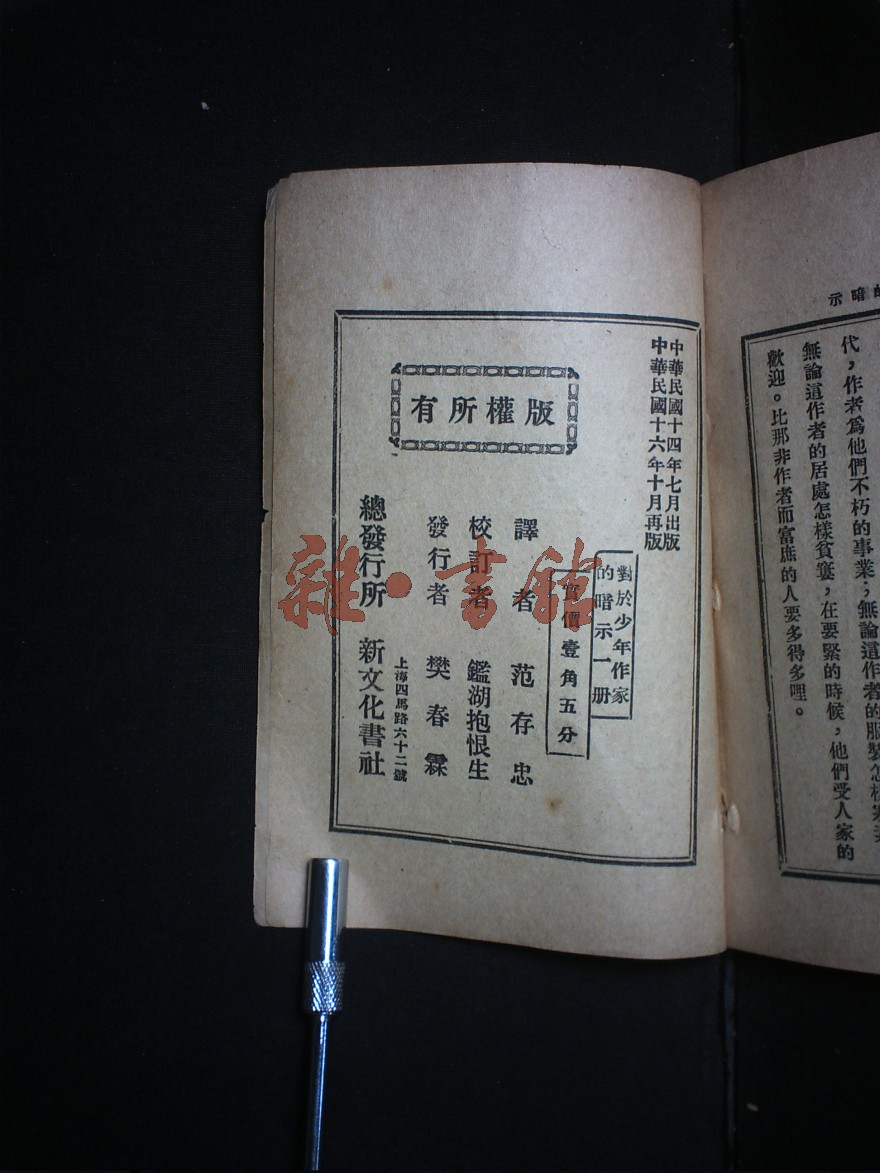 的暗示
代，作者為他們不朽的事業；無論這作者的服裝怎樣
無論這作者的居處怎樣貧寠，在要緊的時候，他們受人家的
歡迎。比那非作者而富庶的人要多得多哩。
中華民國十四年七月出版
中華民國十六年十月再版
對於少年作家
的暗示一册
實價壹角五分
版權所有
譯者 范存忠
校訂者 鑑湖抱恨生
發行者 樊春霖
上海四馬路六十二號
總發行所 新文化書社
雜·書館